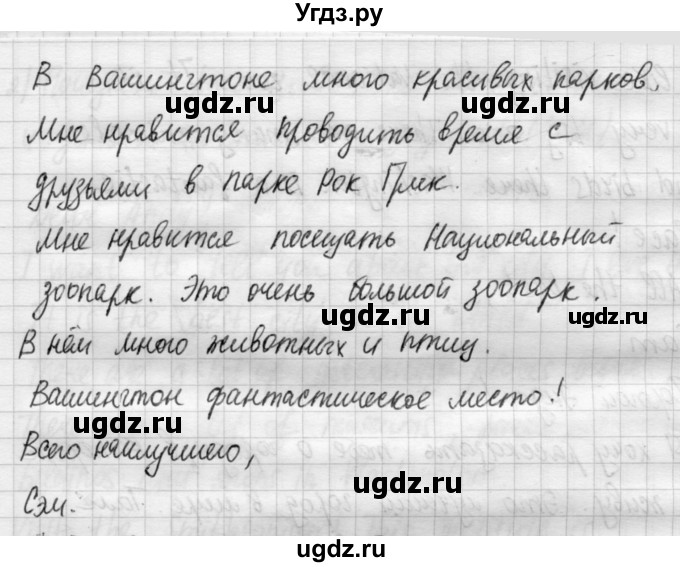 Угдз.ру
В Вашингтоне много красивых парков.
ugdz.ru ugdz.ru
Мне нравится проводить время с
друзьями в парке Рок Прик.
ugdz.ru
Мне нравится посещать Национальный
ugdz.ru
зоопарк. Это очень большой зоопарк.
ugdz.ru ugdz.ru
В нём много животных и птиц.
ugdz.ru
Вашингтон фантастическое место!
ugdz.ru
Всего наилучшего,
ugdz.ru ugdz.ru
Сэм.
ugdz.ru
ugdz.ru